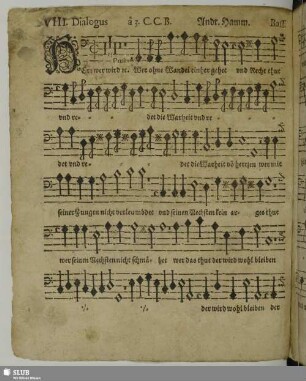 VIII. Dialogus â 3. C. C. B. Andr. Hamm. Bass.
Err wer wird re- Wer ohne Wandel einher gehet vnd Recht thut
vnd re- det die Warheit vnd re-
det vnd re- det die Warheit vō hertzen wer mit
seiner Zungen nicht verleumbdet vnd seinen Nechsten kein ar- ges thut
wer seinen Nechsten nicht schmä- het wer das thut der wird wohl bleiben
der wird wohl bleiben der
SLUB